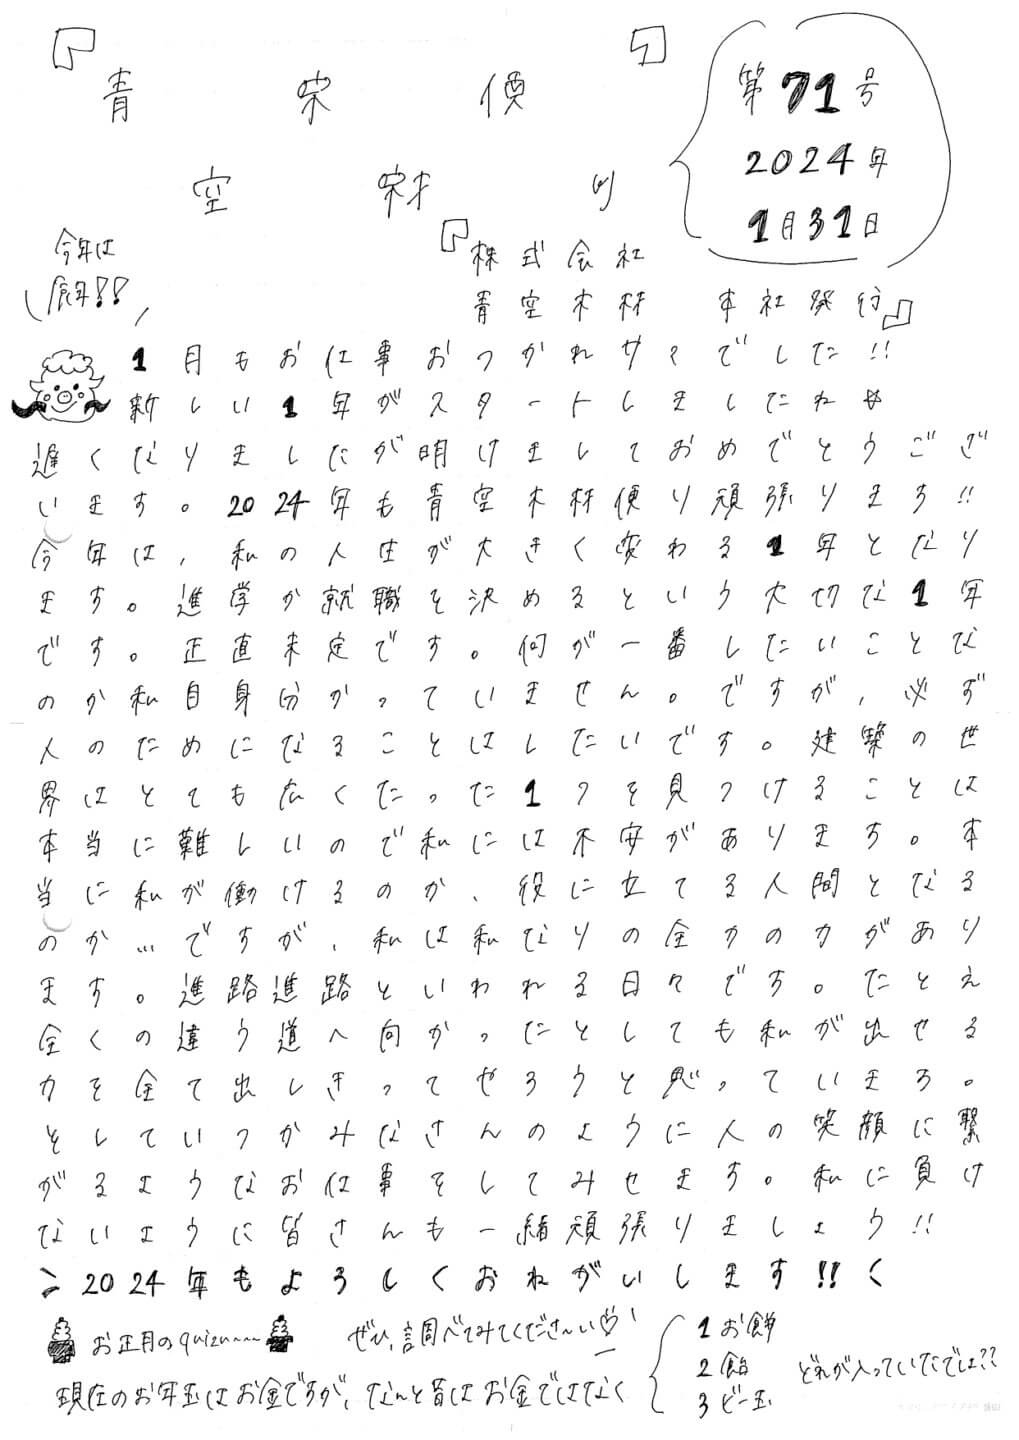 『青空便』
空材り
第71号
2024年
1月31日
今年は
辰年!!
『株式会社
青空木材 本社発行』
1月もお仕事おつかれサマでした!!
新しい1年がスタートしましたね
遅くなりましたが明けましておめでとうござ
います。2024年も青空木材便り頑張ります!!
今年は、私の人生が大きく変わる1年となり
ます。進学か就職を決めるという大切な1年
です。正直未定です。何が一番したいことな
のか私自身分かっていません。ですが、必ず
人のためになることはしたいです。建築の世
界はとても広くたった1つを見つけることは
本当に難しいので私には不安があります。本
当に私が働けるのか、役に立てる人間となる
のか…ですが、私は私なりの全力の力があり
ます。進路進路といわれる日々です。たとえ
全くの違う道へ向かったとしても私が出せる
力を全て出しきってやろうと思っていまる。
としていつかみなさんのように人の笑顔に繋
がるようなお仕事をしてみせます。私に負け
ないように皆さんも一緒頑張りましょう!!
＞2024年もよろしくおねがいします!!＜
お正月のquizu〜〜
ぜひ、調べてみてくださーい♡
現在のお年玉はお金ですが、なんと昔はお金ではなく
1 お餅
2 飴
3 ビー玉
どれが入っていたでしょ??